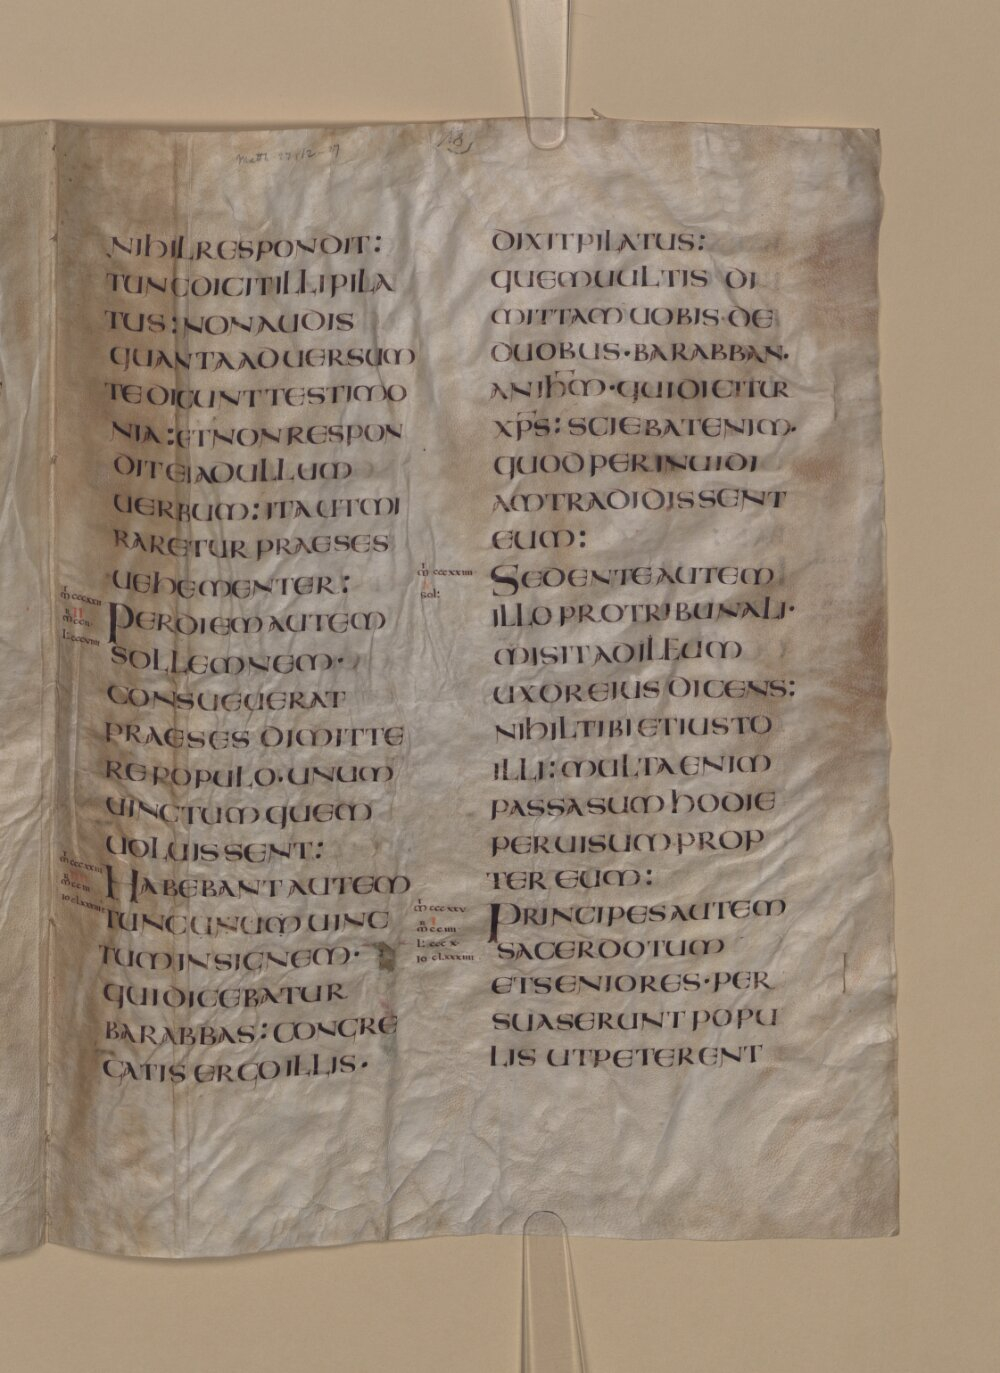 Matth 27, 12-
18
NIHILRESPONDIT:
TUNCDICITILLIPILA
TUS:NONAUDIS
QUANTAADUERSUM
TEDICUNTTESTIMO
NIA:ETNONRESPON
DITEIADULLUM
UERBUM:ITAUTMI
RARETUR PRAESES
UEHEMENTER:
PERDIEMAUTEM
SOLLEMNEM·
CONSUEUERAT
PRAESES DIMITTE
REPOPULO·UNUM
UINCTUMQUEM
UOLUISSENT:
HABEBANTAUTEM
TUNCUNUMUINC
TUMINSIGNEM·
QUIDICEBATUR
BARABBAS:CONGRE
GATISERGOILLIS·
DIXITPILATUS:
QUEMUULTIS DI
MITTAMUOBIS·DE
DUOBUS·BARABBAN·
ANIHM·QUIDICITUR
XPS:SCIEBATENIM·
QUODPERINUIDI
AMTRADIDISSENT
EUM:
sol:
SEDENTEAUTEM
ILLOPROTRIBUNALI·
MISITADILLEUM
UXOREIUS DICENS:
NIHILTIBIETIUSTO
ILLI:MULTAENIM
PASSASUM HODIE
PERUISUMPROP
TER EUM:
PRINCIPESAUTEM
SACERDOTUM
ETSENIORES·PER
SUASERUNTPOPU
LIS UTPETERENT